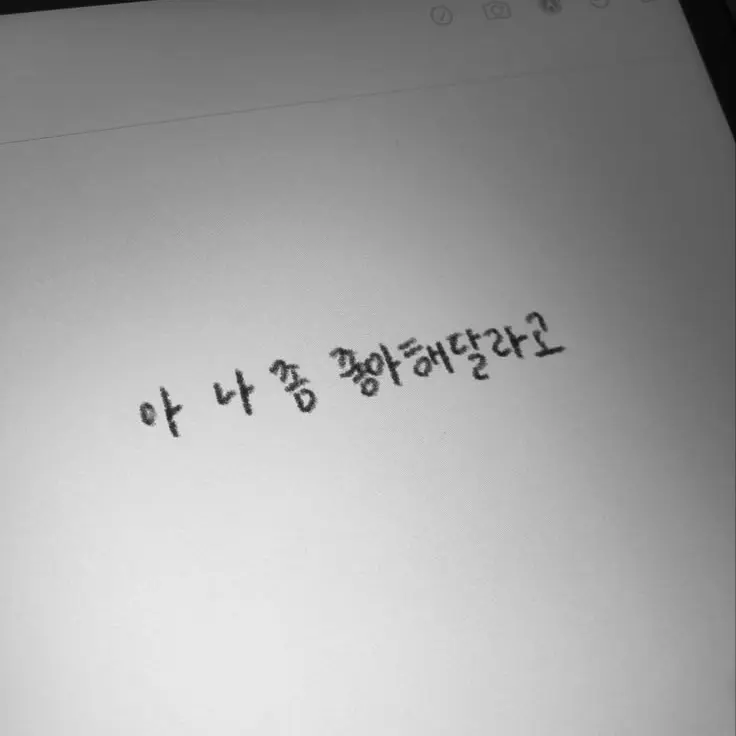 아 나 좀 좋아해달라고